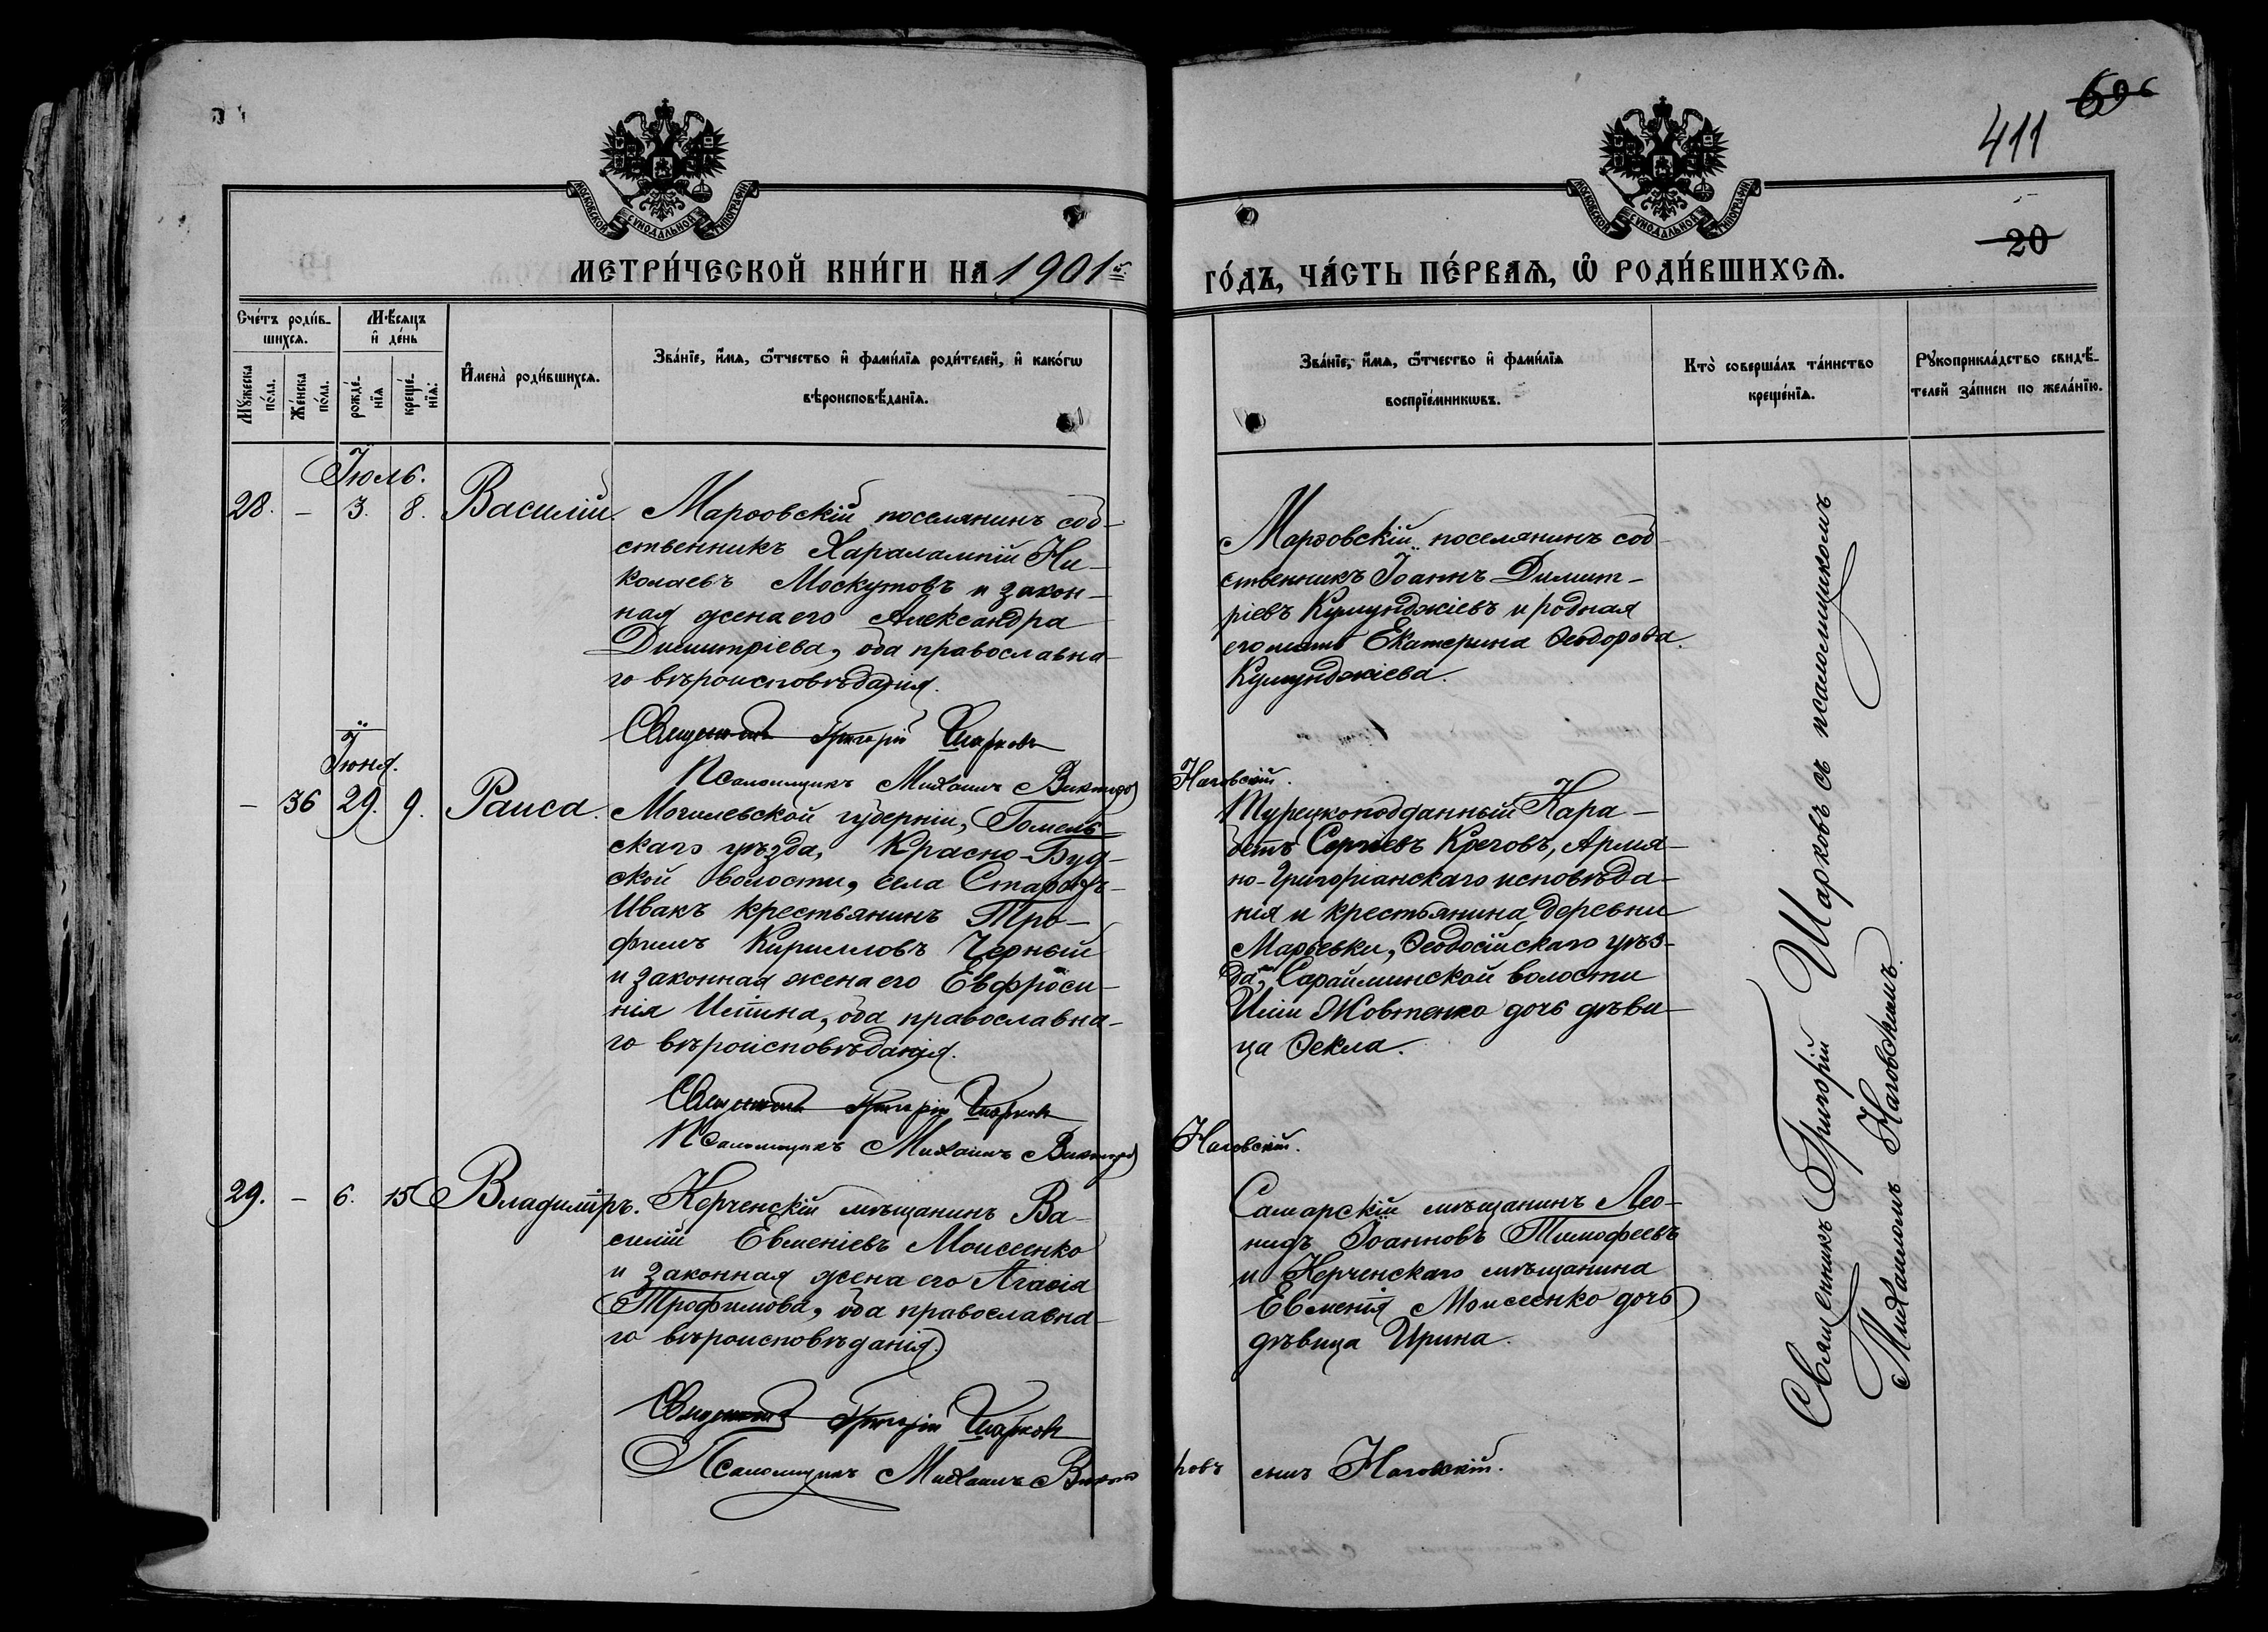 696
411
20
МОСКОВСКОЙ СѴНОДАЛЬНОЙ ТИПОГРАФІИ
МОСКОВСКОЙ СѴНОДАЛЬНОЙ ТИПОГРАФІИ
МЕТРИ́ЧЕСКОЙ КНИ́ГИ НА 1901й
ГО́ДЪ, ЧА́СТЬ ПЕ́РВАѦ, Ѿ РОДИ́ВШИХСѦ.
Сче́тъ роди́в-
шихсѧ.
Мꙋ́жеска
по́ла.
Же́нска
по́ла.
Мѣ́сѧцъ
и҆ де́нь
рожде́-
нїѧ
креще́-
нїѧ.
И҆мена̀ роди́вшихсѧ.
Зва́нїе, и҆́мѧ, ѻ҆́тчество и҆ фами́лїѧ роди́телей, и҆ како́гѡ
вѣроисповѣ́данїѧ.
Зва́нїе, и҆́мѧ, ѻ҆́тчество и҆ фами́лїѧ
воспрїе́мникѡвъ.
Кто̀ соверша́лъ та́инство
креще́нїѧ.
Рꙋкоприкла́дство свидѣ́-
телей за́писи по жела́нїю.
Іюль.
28. – 3. 8. Василій.
Марѳовскій поселянинъ соб-
ственникъ Харалампій Ни-
колаевъ Москутовъ и закон-
ная жена его Александра
Димитріева, оба православна-
го вѣроисповѣданія.
Священникъ Григорій Шарковъ
Псаломщикъ Михаилъ Викторов
Наговскій.
Марѳовскій поселянинъ соб-
ственникъ Іоаннъ Димит-
ріевъ Кумунджіевъ и родная
его мать Екатерина Ѳеодорова
Кумунджіева.
Іюня.
– 36 29. 9. Раиса.
Могилевской губерніи, Гомель-
скаго уѣзда, Красно-Буд-
ской волости, села
Ивакъ крестьянинъ Тро-
фимъ Кирилловъ Черный
и законная жена его Евфроси-
нія Ильина, оба православна-
го вѣроисповѣданія.
Священникъ Григорій Шарковъ
Псаломщикъ Михаилъ Викторов
Наговскій.
Турецкоподданный Кара-
бетъ Сергіевъ Креговъ, Армя-
но-Григоріанскаго исповѣда-
нія и крестьянина деревни
Марьевки, Ѳеодосійскаго уѣз-
да, Сарайминской волости
Иліи Жовтенко дочь дѣви-
ца Ѳекла.
29. – 6. 15 Владиміръ.
Керченскій мѣщанинъ Ва-
силій Евменіевъ Моисеенко
и законная жена его Агаѳія
Трофимова, оба православна-
го вѣроисповѣданія.
Священникъ Григорій Шарковъ
Псаломщикъ Михаилъ Викто
ровъ сынъ Наговскій.
Самарскій мѣщанинъ Лео-
нидъ Іоанновъ Тимофеевъ
и Керченскаго мѣщанина
Евменія Моисеенко дочь
дѣвица Ирина.
Священникъ Григорій Шарковъ съ псаломщикомъ
Михаиломъ Наговскимъ.